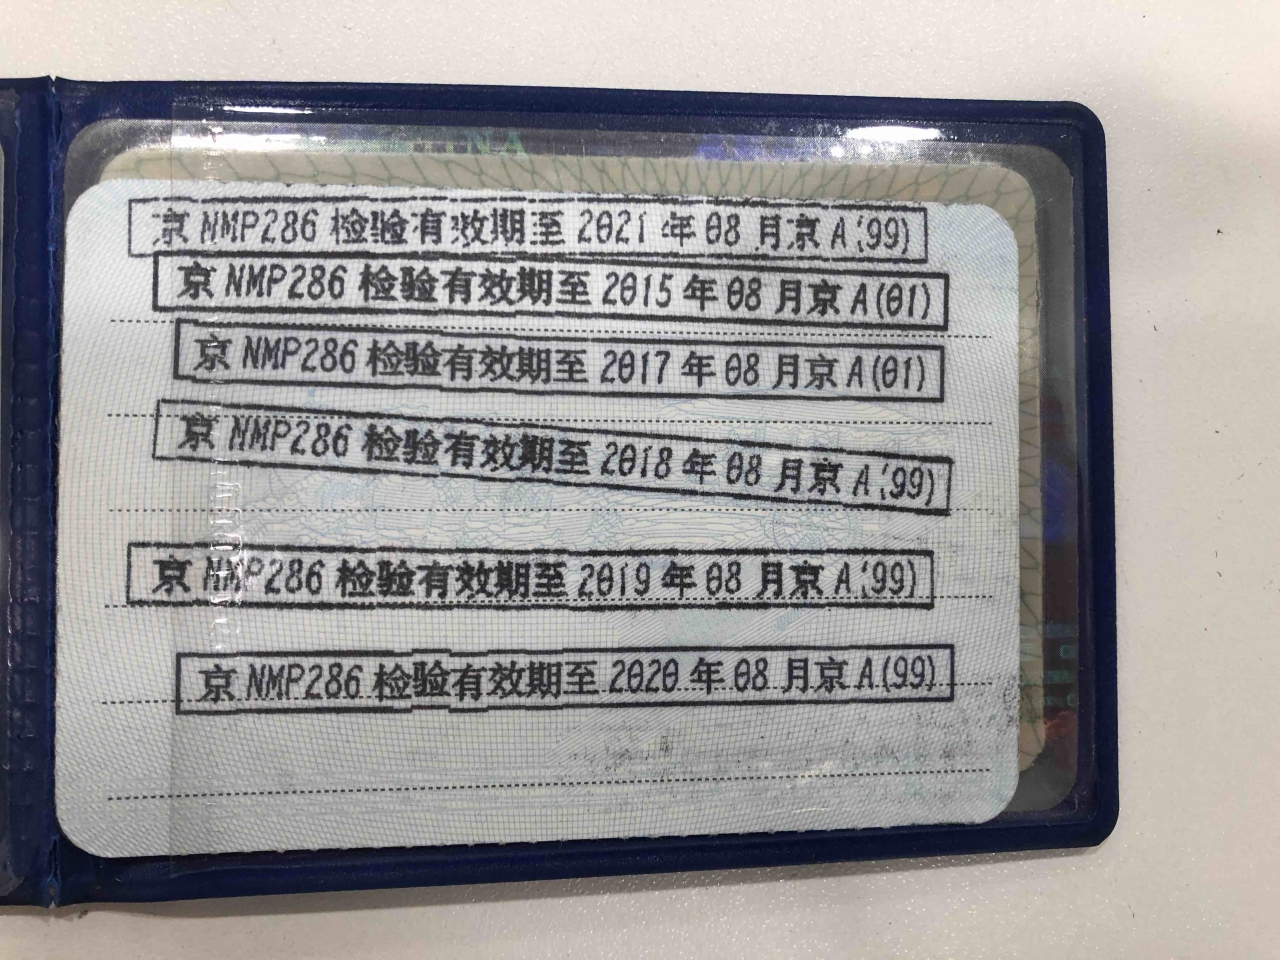 京 NMP286 检验有效期至 2021 年 08 月京 A(99)
京 NMP286 检验有效期至 2015 年 08 月京 A(01)
京 NMP286 检验有效期至 2017 年 08 月京 A(01)
京 NMP286 检验有效期至 2018 年 08 月京 A(99)
京 NMP286 检验有效期至 2019 年 08 月京 A(99)
京 NMP286 检验有效期至 2020 年 08 月京 A(99)